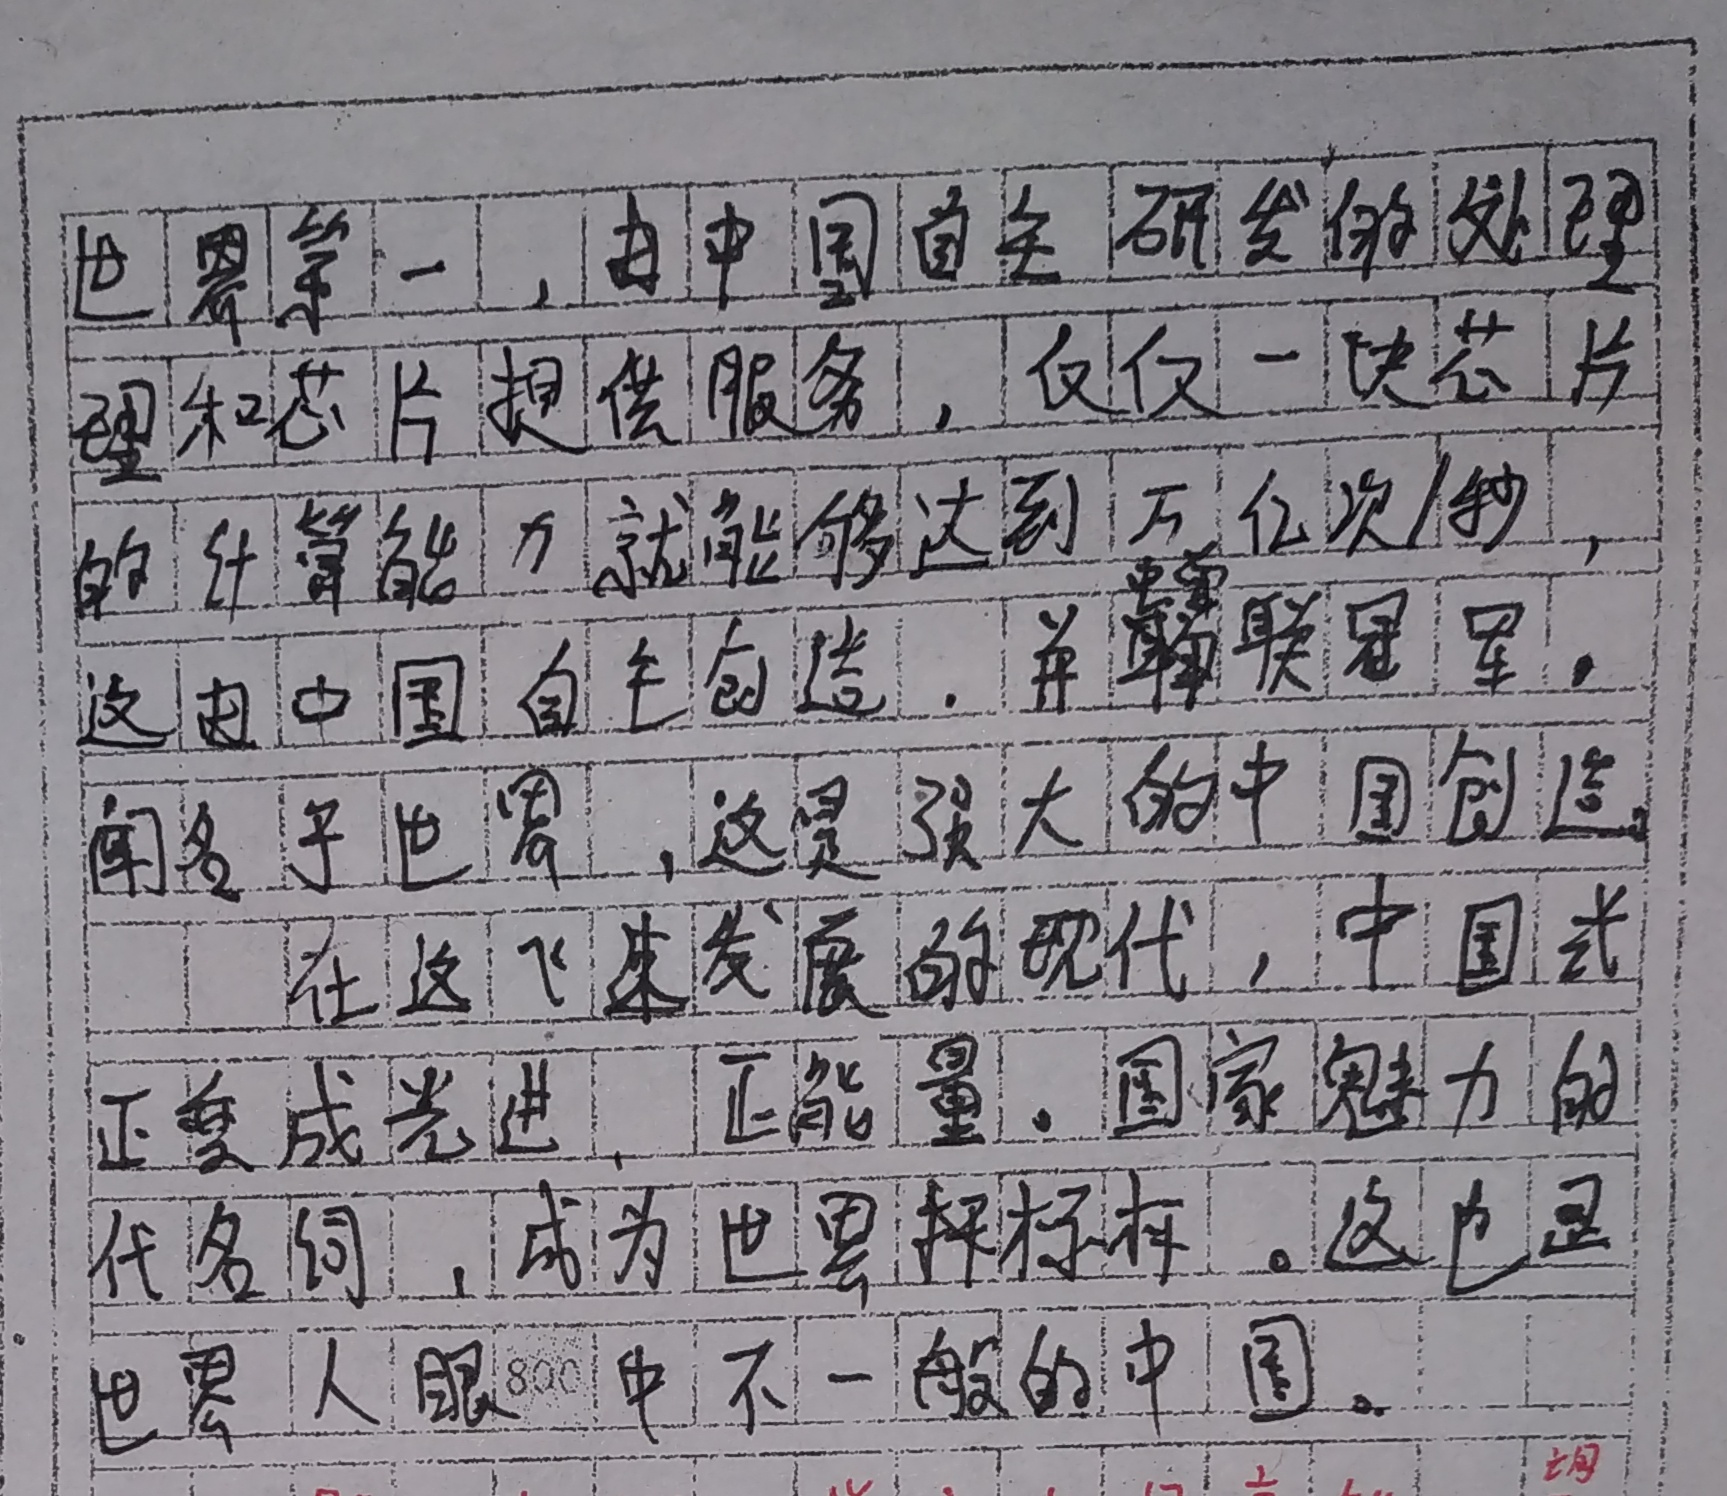 世界第一，由中国首先研发的处理
理和芯片提供服务，仅仅一块芯片
的计算能力就能够达到万亿次/秒，
这由中国自主创造．并蝉联冠军．
闻名于世界，这是强大的中国创造。
在这飞速发展的现代，中国式
正变成先进、正能量。国家魅力的
代名词，成为世界择标杆。这也是
世界人眼中不一般的中国。
800